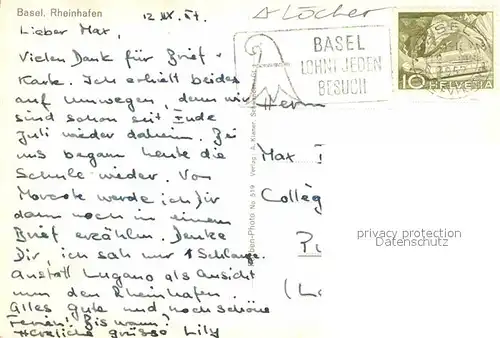 Basel. Rheinhafen
12 . IX . 57.
A Löcher
Lieber Max,
Vielen Dank für Brief-
Karte. Ich erhielt beides
auf Umwegen, denn wir
sind schon seit Ende
Juli wieder daheim. Bei
uns begann heute die
Schule wieder. Von
Morcote werde ich Dir
dann noch in einem
Brief erzählen. Denke
Dir, ich sah nur 1 Schlange.
Anstatt Lugano als Ansicht
nun den Rheinhafen.
Alles gute und noch schöne
Ferien! Bis wann?
Herzliche grüsse Lily
BASEL
LOHNT JEDEN
BESUCH
BASEL
10 HELVETIA
Herrn
Max
Collèg
privacy protection
Datenschutz
Farben-Photo No. 519 Verlag: A. Klarer,